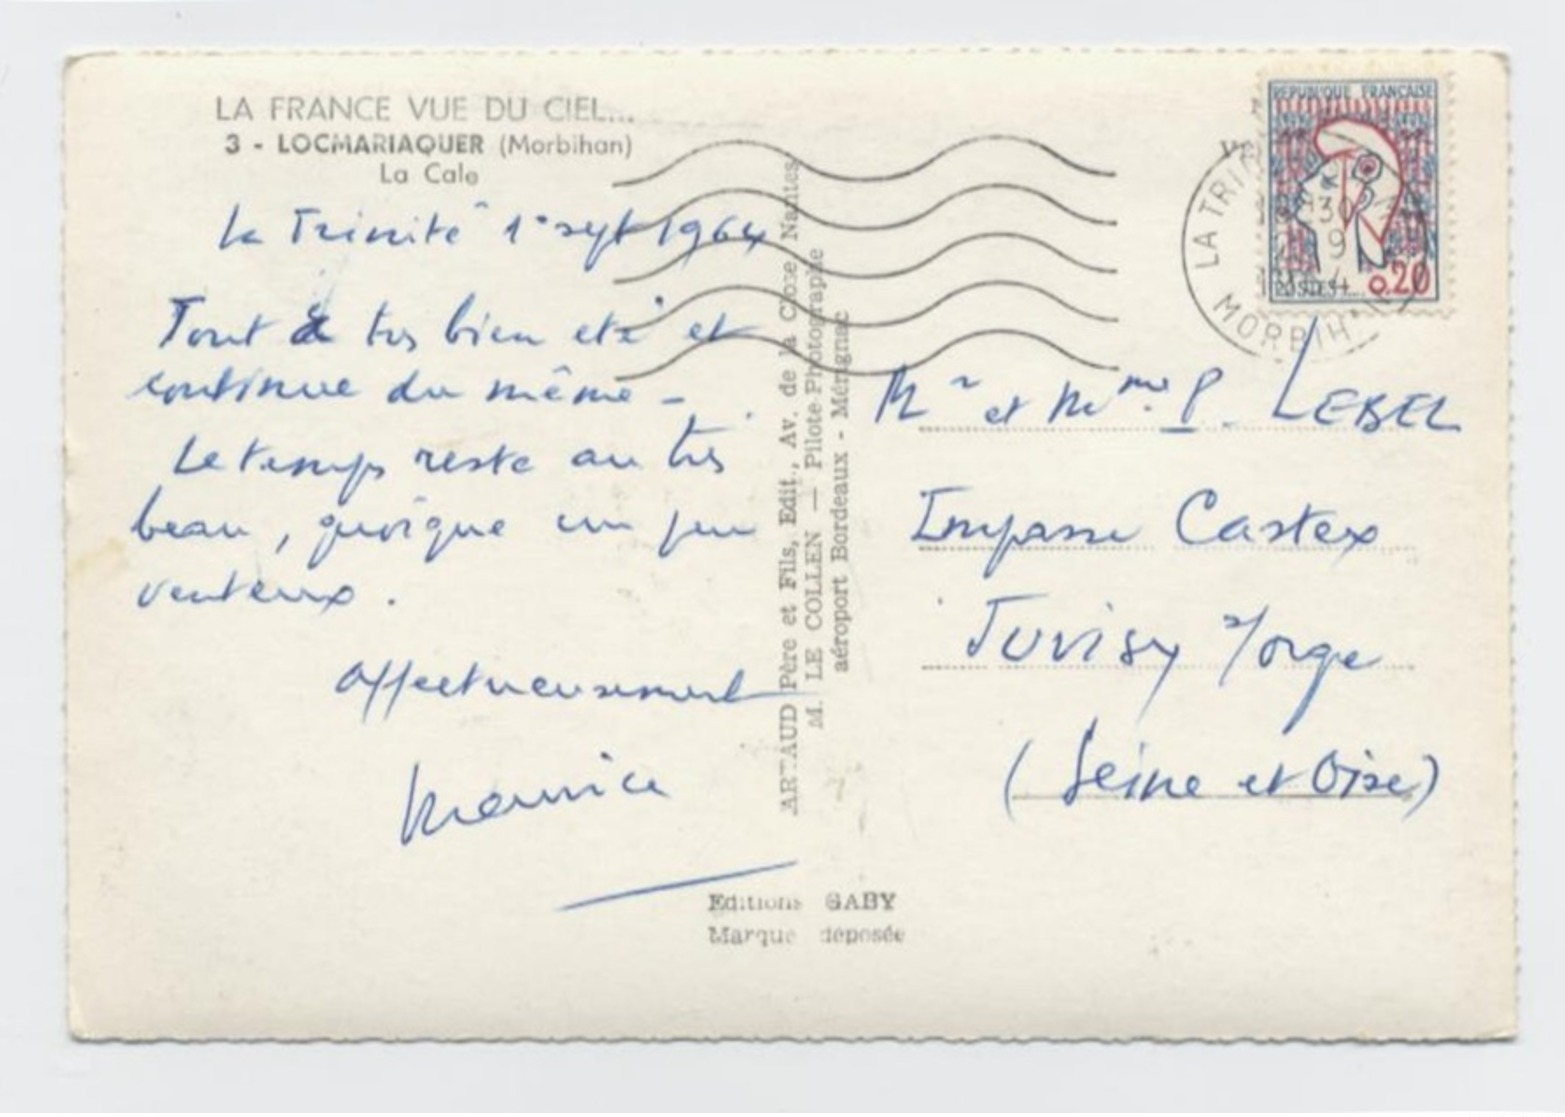 LA FRANCE VUE DU CIEL...
3 - LOCMARIAQUER (Morbihan)
La Cale
La Trinité 1° sept 1964
Tout a très bien été et
continue du même -
Le temps reste au très
beau, quoique un peu
venteux.
Affectueusement
Maurice
ARTAUD Père et Fils, Edit., Av. de la Close Nantes
M. LE COLLEN — Pilote-Photographe
aéroport Bordeaux - Mérignac
Editions GABY
Marque déposée
REPUBLIQUE FRANÇAISE
POSTES 0.20
LA TRI
30
9
MORBIH
Mr et Mme P. LEBEL
Impasse Castex
JUVISY s/orge
(Seine et Oise)